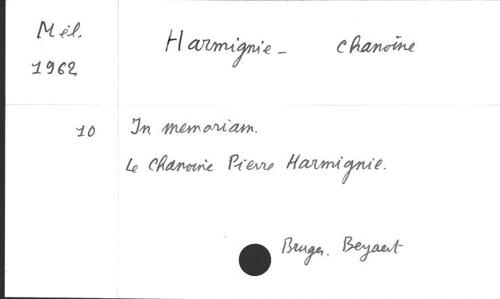 Mél. Harmignie - chanoine
1962
10 In memoriam.
Le Chanoine Pierre Harmignie.
Bruges. Beyaert